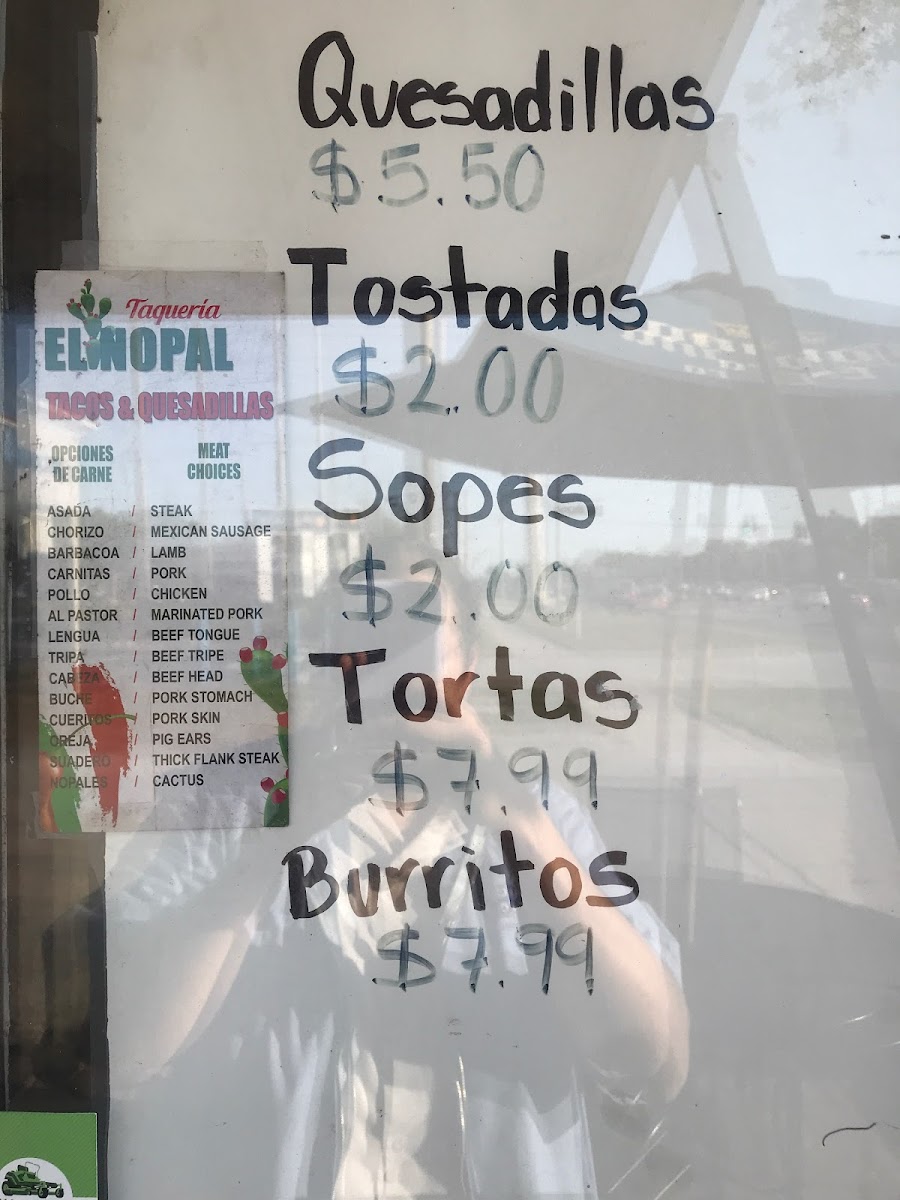 Quesadillas
$5.50
Tostadas
$2.00
Sopes
$2.00
Tortas
$7.99
Burritos
$7.99
Taquería
EL NOPAL
TACOS & QUESADILLAS
OPCIONES DE CARNE
MEAT CHOICES
ASADA / STEAK
CHORIZO / MEXICAN SAUSAGE
BARBACOA / LAMB
CARNITAS / PORK
POLLO / CHICKEN
AL PASTOR / MARINATED PORK
LENGUA / BEEF TONGUE
TRIPA / BEEF TRIPE
CABEZA / BEEF HEAD
BUCHE / PORK STOMACH
CUERITOS / PORK SKIN
OREJA / PIG EARS
SUADERO / THICK FLANK STEAK
NOPALES / CACTUS